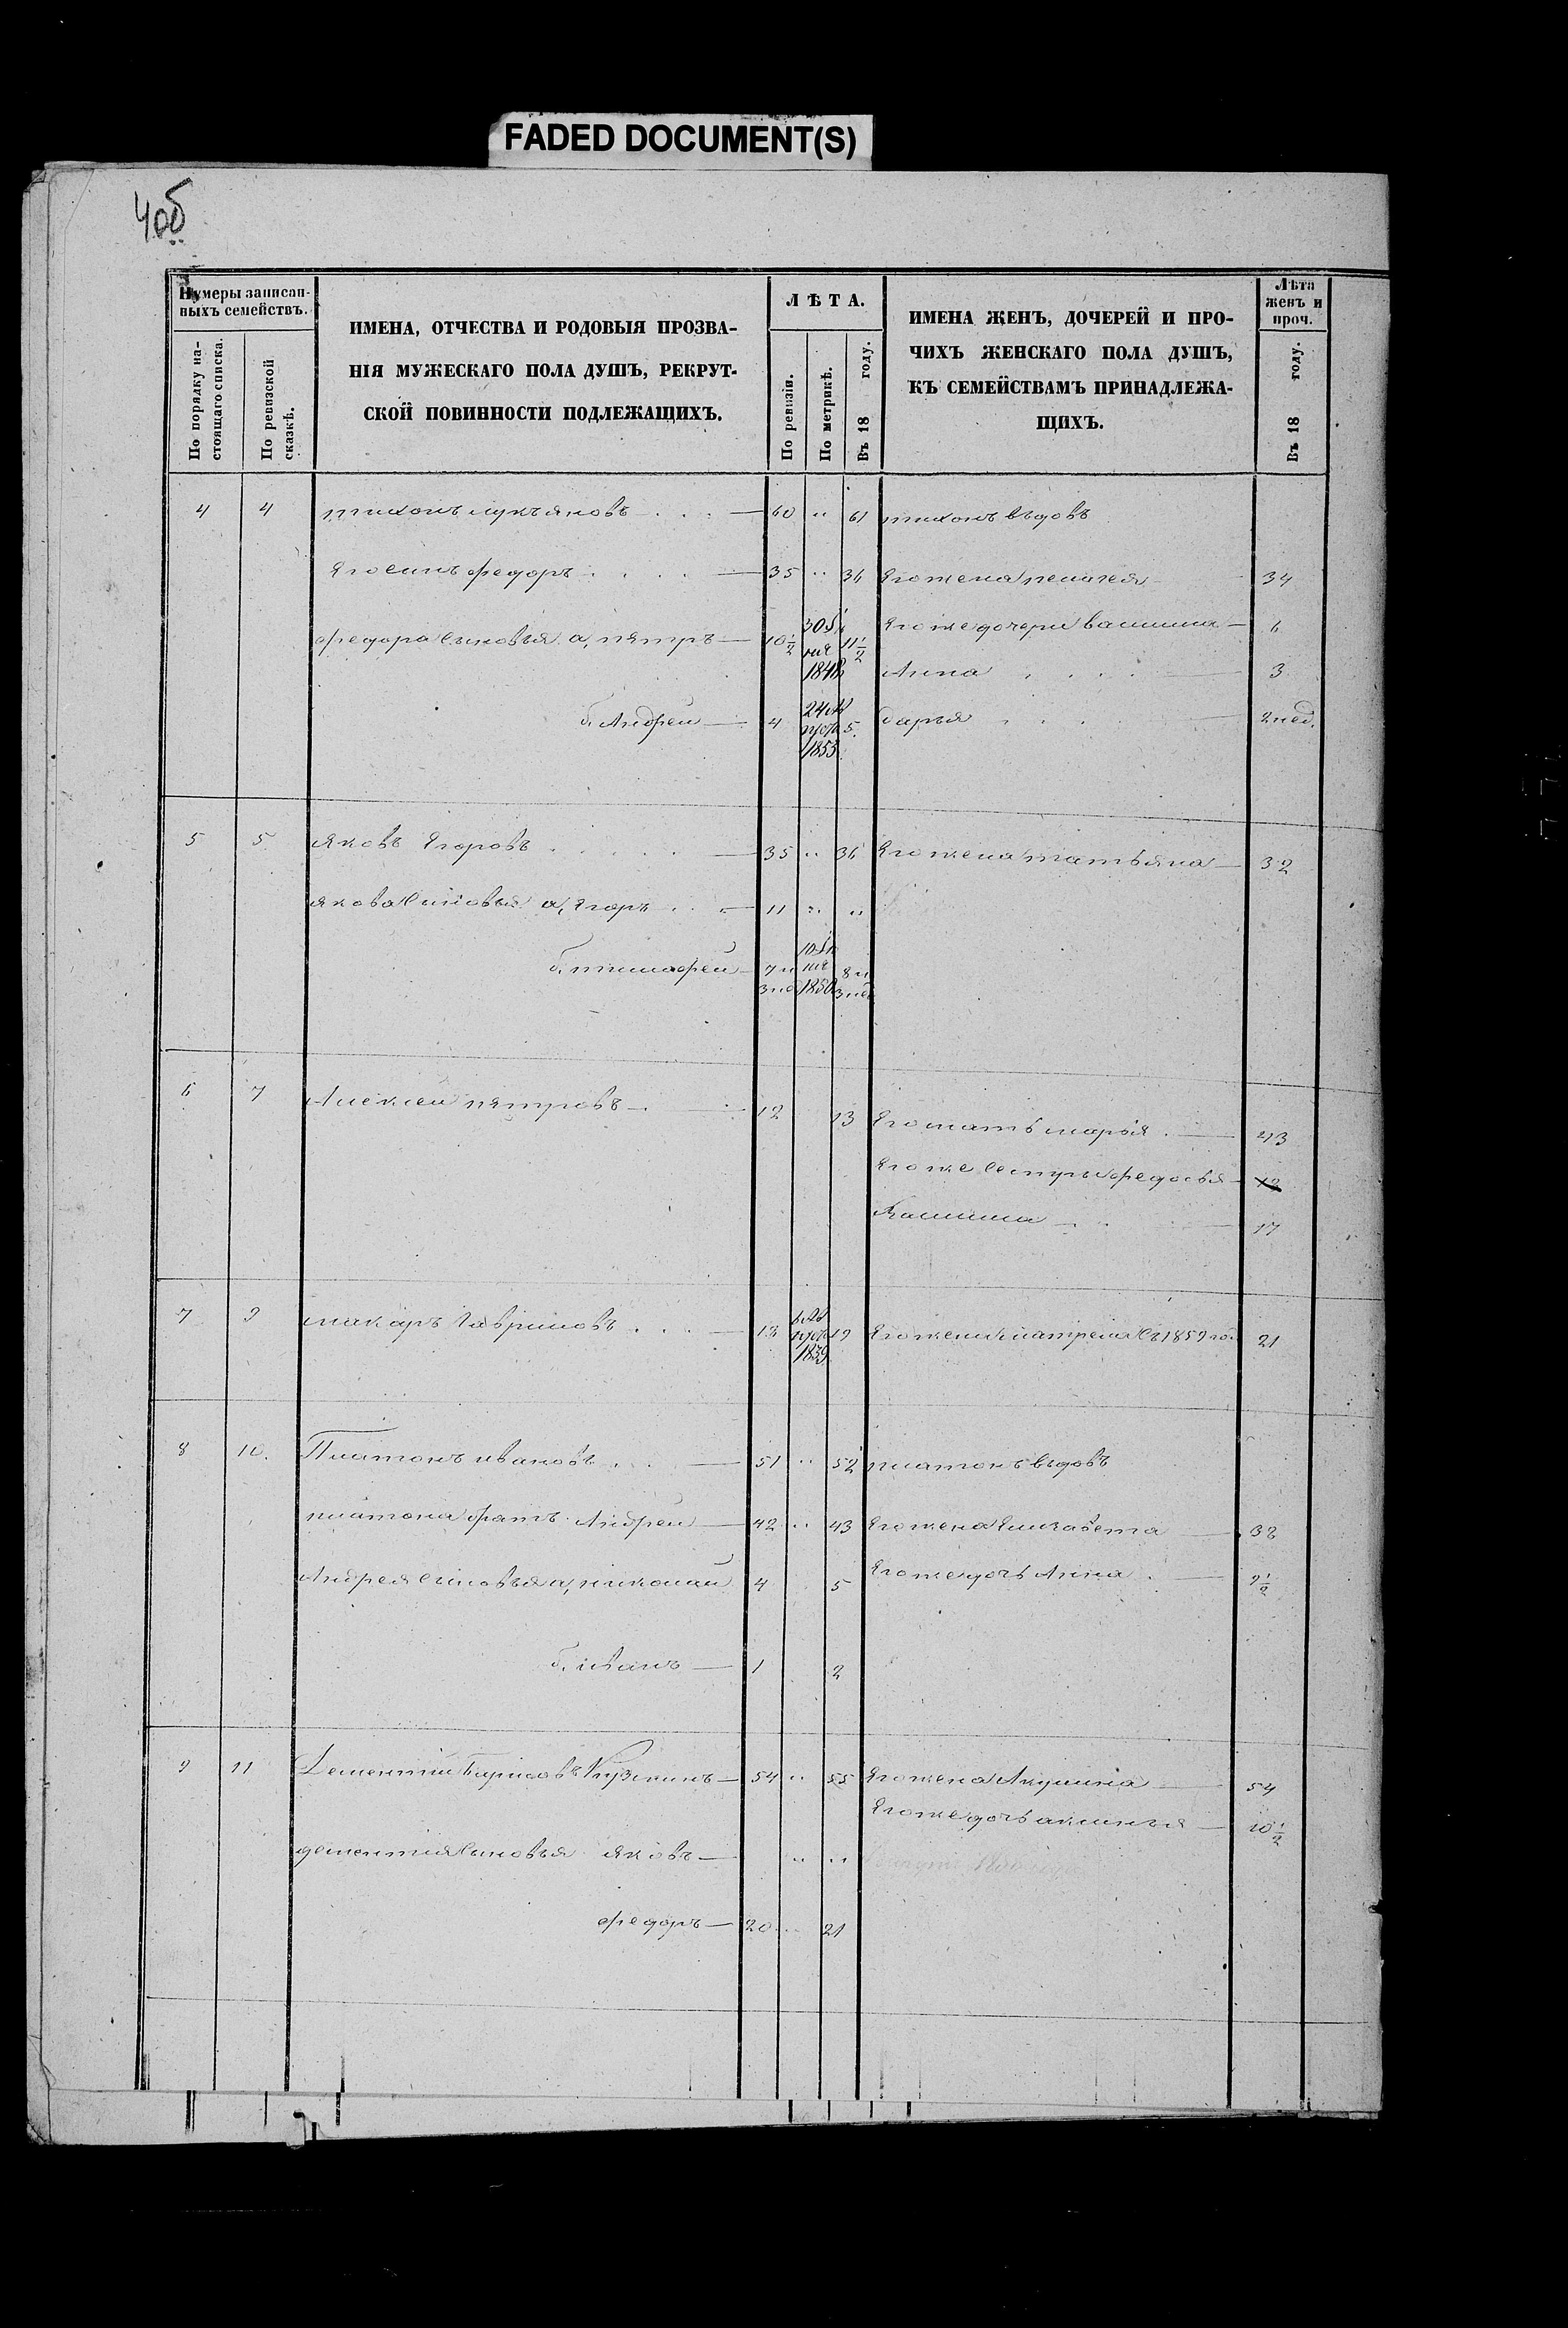 FADED DOCUMENT(S)
40б
Нумеры записан-
ныхъ семействъ.
По порядку на-
стоящаго списка.
По ревизской
сказкѣ.
ИМЕНА, ОТЧЕСТВА И РОДОВЫЯ ПРОЗВА-
НІЯ МУЖЕСКАГО ПОЛА ДУШЪ, РЕКРУТ-
СКОЙ ПОВИННОСТИ ПОДЛЕЖАЩИХЪ.
ЛѢТА.
По ревизіи.
По метрикѣ.
Въ 18 году.
ИМЕНА ЖЕНЪ, ДОЧЕРЕЙ И ПРО-
ЧИХЪ ЖЕНСКАГО ПОЛА ДУШЪ,
КЪ СЕМЕЙСТВАМЪ ПРИНАДЛЕЖА-
ЩИХЪ.
Лѣта
женъ и
проч.
Въ 18 году.
4 4 тихонъ лукъяновъ 60 " 61 тихонъ въдовъ
Ягосынъ федоръ 35 " 36 Ягожена пелагея 34
федора сыновья а, пятръ 10½ 30 1848 11½ Ягоже дочери 6
Анна 3
б. Андрей 4 24 1853 5 дарья 2 нед.
5 5 яковъ Ягоровъ 35 " 36 Ягожена татьяна 32
якова сыновья а, Ягоръ 11 " "
б. тимофей 7 и 3 нед 10 1850 8 и 3 нед
6 7 Алексей пятровъ 12 13 Ягомать марья 43
Ягоже сестры федосья 19
17
7 9 макаръ Гавриловъ 18 1839 19 Ягожена матрена съ 1859 го. 21
8 10. Платонъ ивановъ 51 " 52 платонъ въдовъ
платона братъ Андрей 42 " 43 Ягожена Елизавета 38
Андрея сыновья а, николай 4 5 Ягоже дочь Анна 9½
б. иванъ 1 2
9 11 Дементий Борисовъ Кузминъ 54 " 55 Ягожена Акулина 54
Ягоже дочь аксинья 10½
дементия сыновья яковъ " "
федоръ 20 " 21